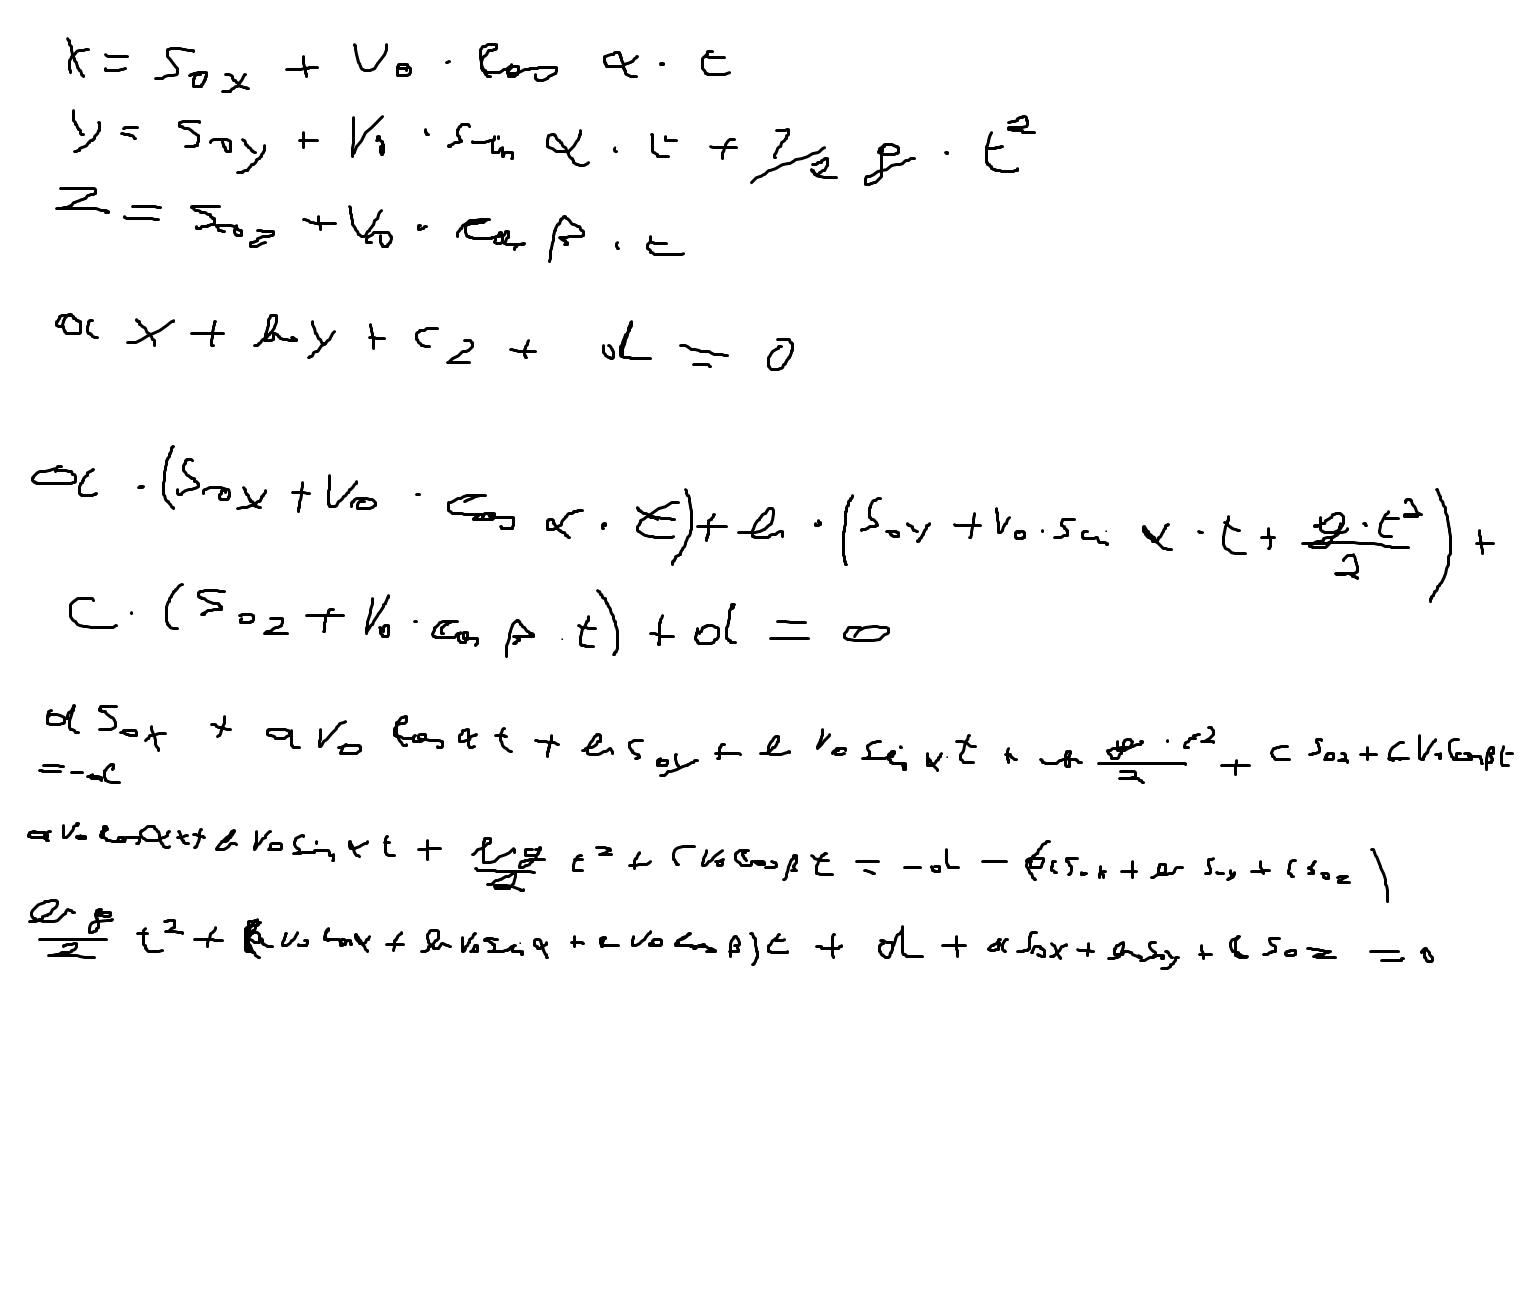 x = s₀ₓ + v₀ · cos α · t
y = s₀y + v₀ · sin α · t + 1/2 g · t²
z = s₀z + v₀ · cos β · t
a x + b y + c z + d = 0
a · (s₀ₓ + v₀ · cos α · t) + b · (s₀y + v₀ · sin α · t + g · t²/2) +
c · (s₀z + v₀ · cos β · t) + d = 0
a s₀ₓ + a v₀ cos α t + b s₀y + b v₀ sin α · t + b g · t²/2 + c s₀z + c v₀ cos β t
= -d
a v₀ cos α t + b v₀ sin α t + bg/2 t² + c v₀ cos β t = -d - (a s₀ₓ + b s₀y + c s₀z)
b g/2 t² + (a v₀ cos α + b v₀ sin α + c v₀ cos β) t + d + a s₀ₓ + b s₀y + c s₀z = 0